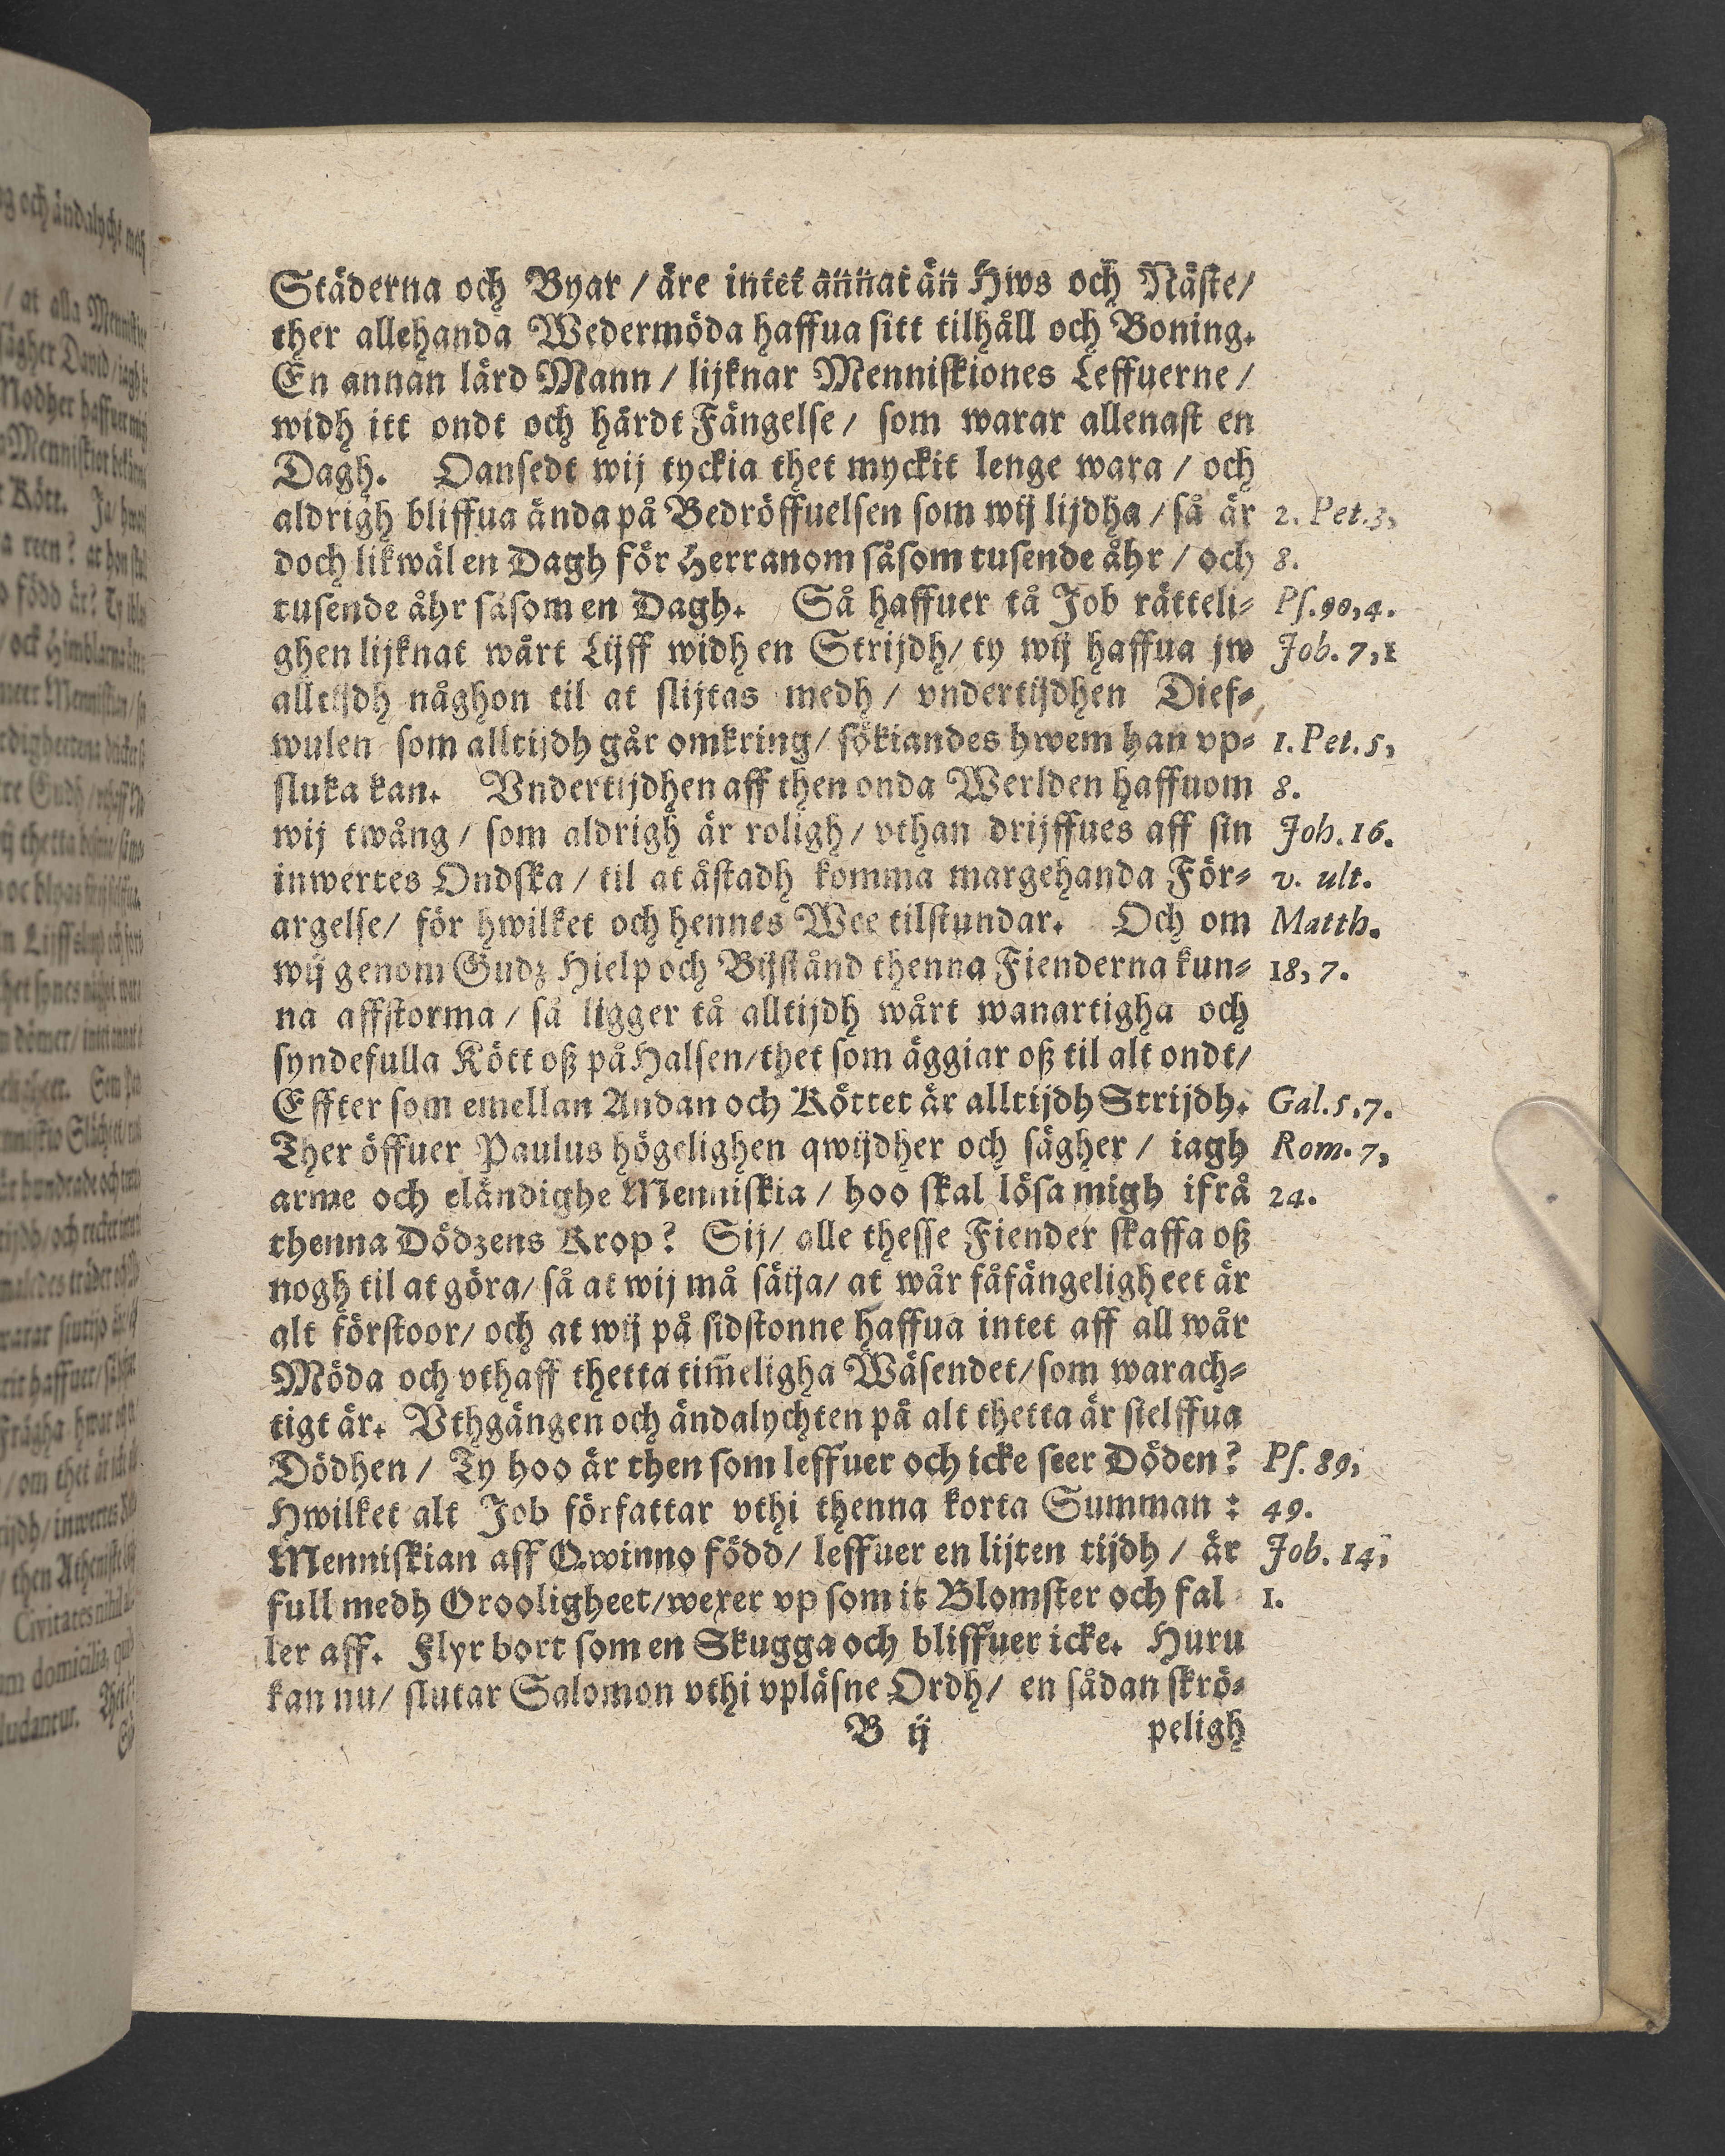 Städerna och Byar / äre intet annat än Hws och Näste /
ther allehanda Wedermöda haffua sitt tilhåll och Boning.
En annan lärd Mann / lijknar Menniskiones Leffuerne /
widh itt ondt och hårdt Fängelse / som warar allenast en
Dagh. Oansedt wij tyckia thet myckit lenge wara / och
aldrigh bliffua ända på Bedröffuelsen som wij lijdha / så är 2. Pet. 3,
doch likwäl en Dagh för Herranom såsom tusende åhr / och 8.
tusende åhr såsom en Dagh. Så haffuer tå Job rätteli- Ps. 90, 4.
ghen lijknat wårt Lijff widh en Strijdh / ty wij haffua jw Job. 7, 1
alltijdh någhon til at slijtas medh / vndertijdhen Dief-
wulen som alltijdh går omkring / sökiandes hwem han vp- 1. Pet. 5,
sluka kan. Vndertijdhen aff then onda Werlden haffuom 8.
wij twång / som aldrigh är roligh / vthan drijffues aff sin Joh. 16.
inwertes Ondska / til at åstadh komma margehanda För- v. ult.
argelse / för hwilket och hennes Wee tilstundar. Och om Matth.
wij genom Gudz Hielp och Bijstånd thenna Fienderna kun- 18, 7.
na affstorma / så ligger tå alltijdh wårt wanartigha och
syndefulla Kött oß på Halsen / thet som äggiar oß til alt ondt /
Effter som emellan Andan och Köttet är alltijdh Strijdh. Gal. 5, 7.
Ther öffuer Paulus högelighen qwijdher och sägher / iagh Rom. 7,
arme och eländighe Menniskia / hoo skal lösa migh ifrå 24.
thenna Dödzens Krop? Sij / alle thesse Fiender skaffa oß
nogh til at göra / så at wij må säija / at wår fåfängeligheet är
alt förstoor / och at wij på sidstonne haffua intet aff all wår
Möda och vthaff thetta tim̄eligha Wäsendet / som warach-
tigt är. Vthgången och ändalychten på alt thetta är sielffua
Dödhen / Ty hoo är then som leffuer och icke seer Döden? Ps. 89,
Hwilket alt Job författar vthi thenna korta Summan : 49.
Menniskian aff Qwinno född / leffuer en lijten tijdh / är Job. 14,
full medh Orooligheet / wexer vp som it Blomster och fal 1.
ler aff. Flyr bort som en Skugga och bliffuer icke. Huru
kan nu / slutar Salomon vthi vpläsne Ordh / en sådan skrö-
B ij peligh